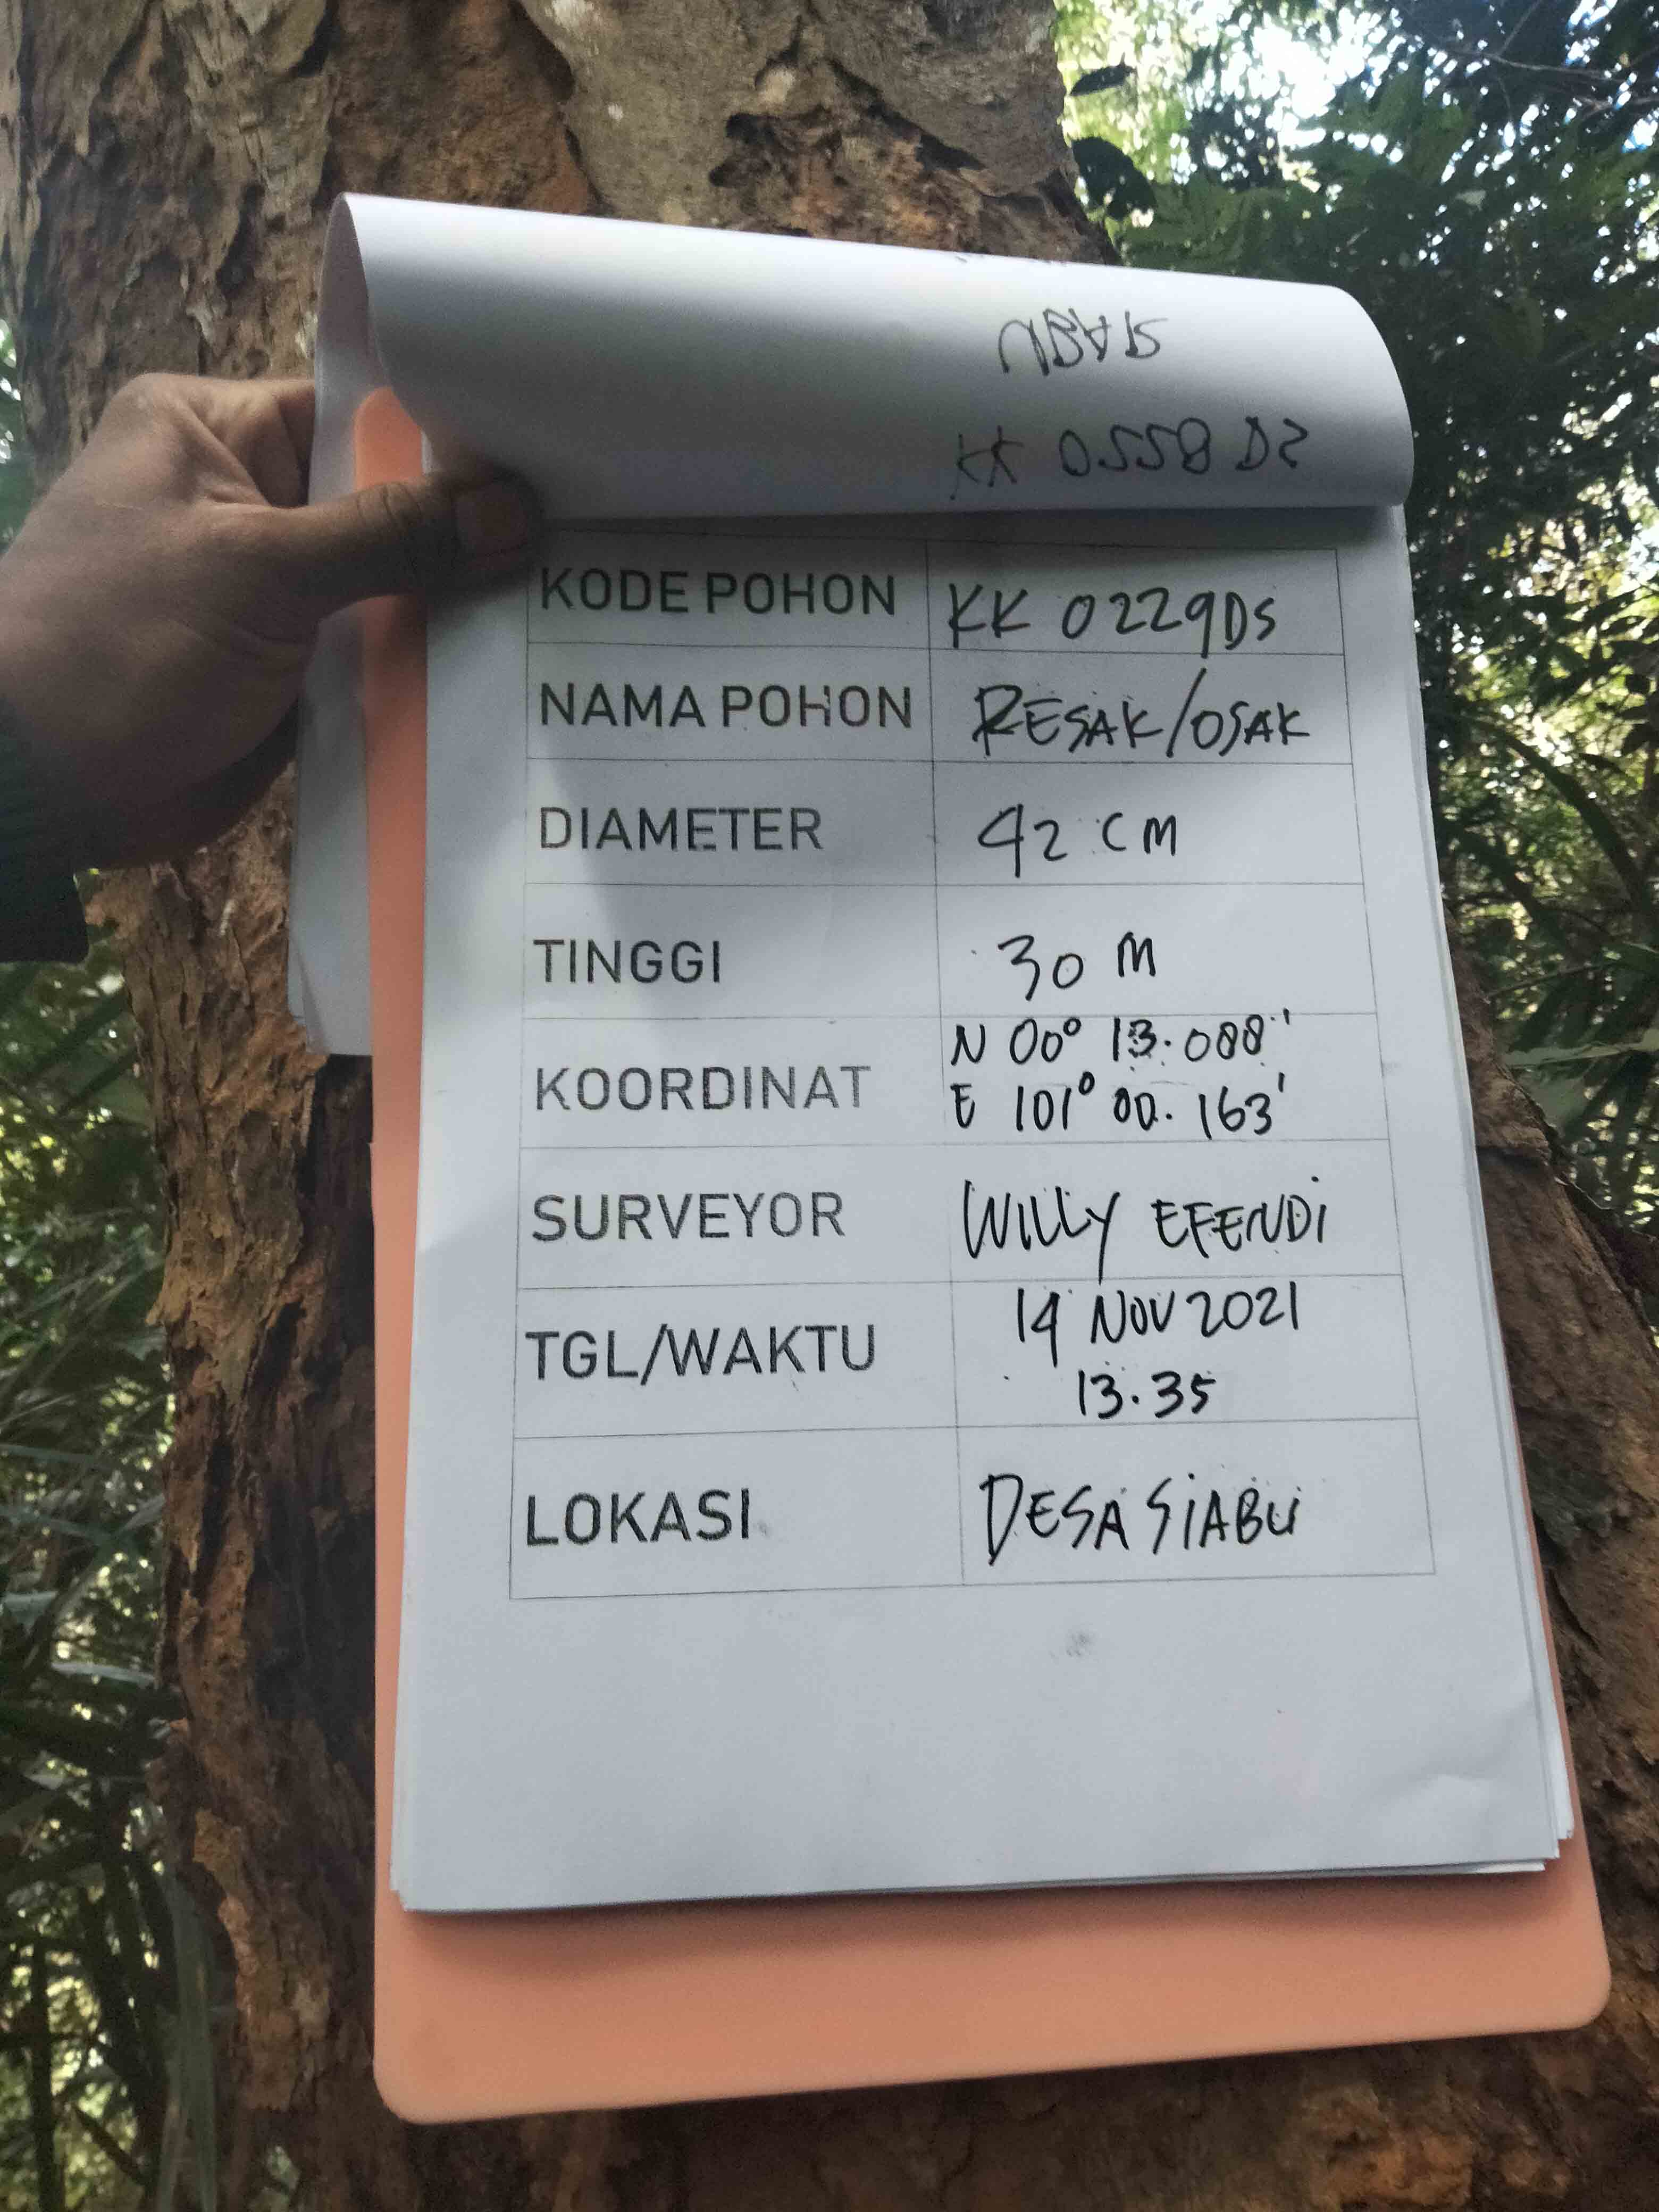 SIABU
KK 0558 DS
KODE POHON KK 0229DS
NAMA POHON RESAK/OSAK
DIAMETER 42 CM
TINGGI 30 M
KOORDINAT N 00° 13.088'
E 101° 00.163'
SURVEYOR WILLY EFENDI
TGL/WAKTU 14 NOV 2021
13.35
LOKASI DESA SIABU